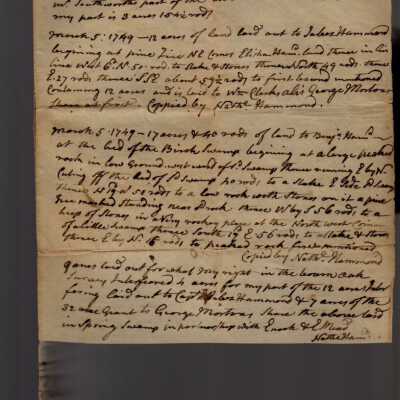 mr Southworths part of the
my part is 3 acres 154½ rods
march 5: 1749 — 12 acres of land laid out to Jabez Hammond
begining at pine Tree NE corner Elisha Ham: land thence in his
line West 6° N: 50 rods to stake & Stones thence North 49 rods thence
E: 27 rods thence SSE about 59½ rods to first bound mentioned
Containing 12 acres and is laid to Wm Clarks George Mortons
Share at first. Coppied by Nathl Hammond.
march 5: 1749 — 17 acres & 40 rods of land to Benjn Ham:
at the bed of the Birch Swamp begining at a large peaked
rock in low Ground west end of sd Swamp thence running E by N
Cuting off the bed of sd Swamp 40 rods to a stake
thence 58 rods to a low rock with Stones on it a pine
tree marked Standing near rock: thence W by S 56 rods to a
heep of Stones in a Very rockey place at the North west Corner
of a little thence South 19 E 56 rods to a stake & stones
thence E by N: 16 rods to peaked rock first mentioned
Copied by Nathl: Hammond
9 acres laid out for what my right in the town
4 acres for my part of the 12 acres
laid out to Capt Jabez Hammond & 7 acres of the
32 acre Grant to George Mortons Share the above land
in Spring Swamp in partnership with Enock & E Mead
Nathl Ham: